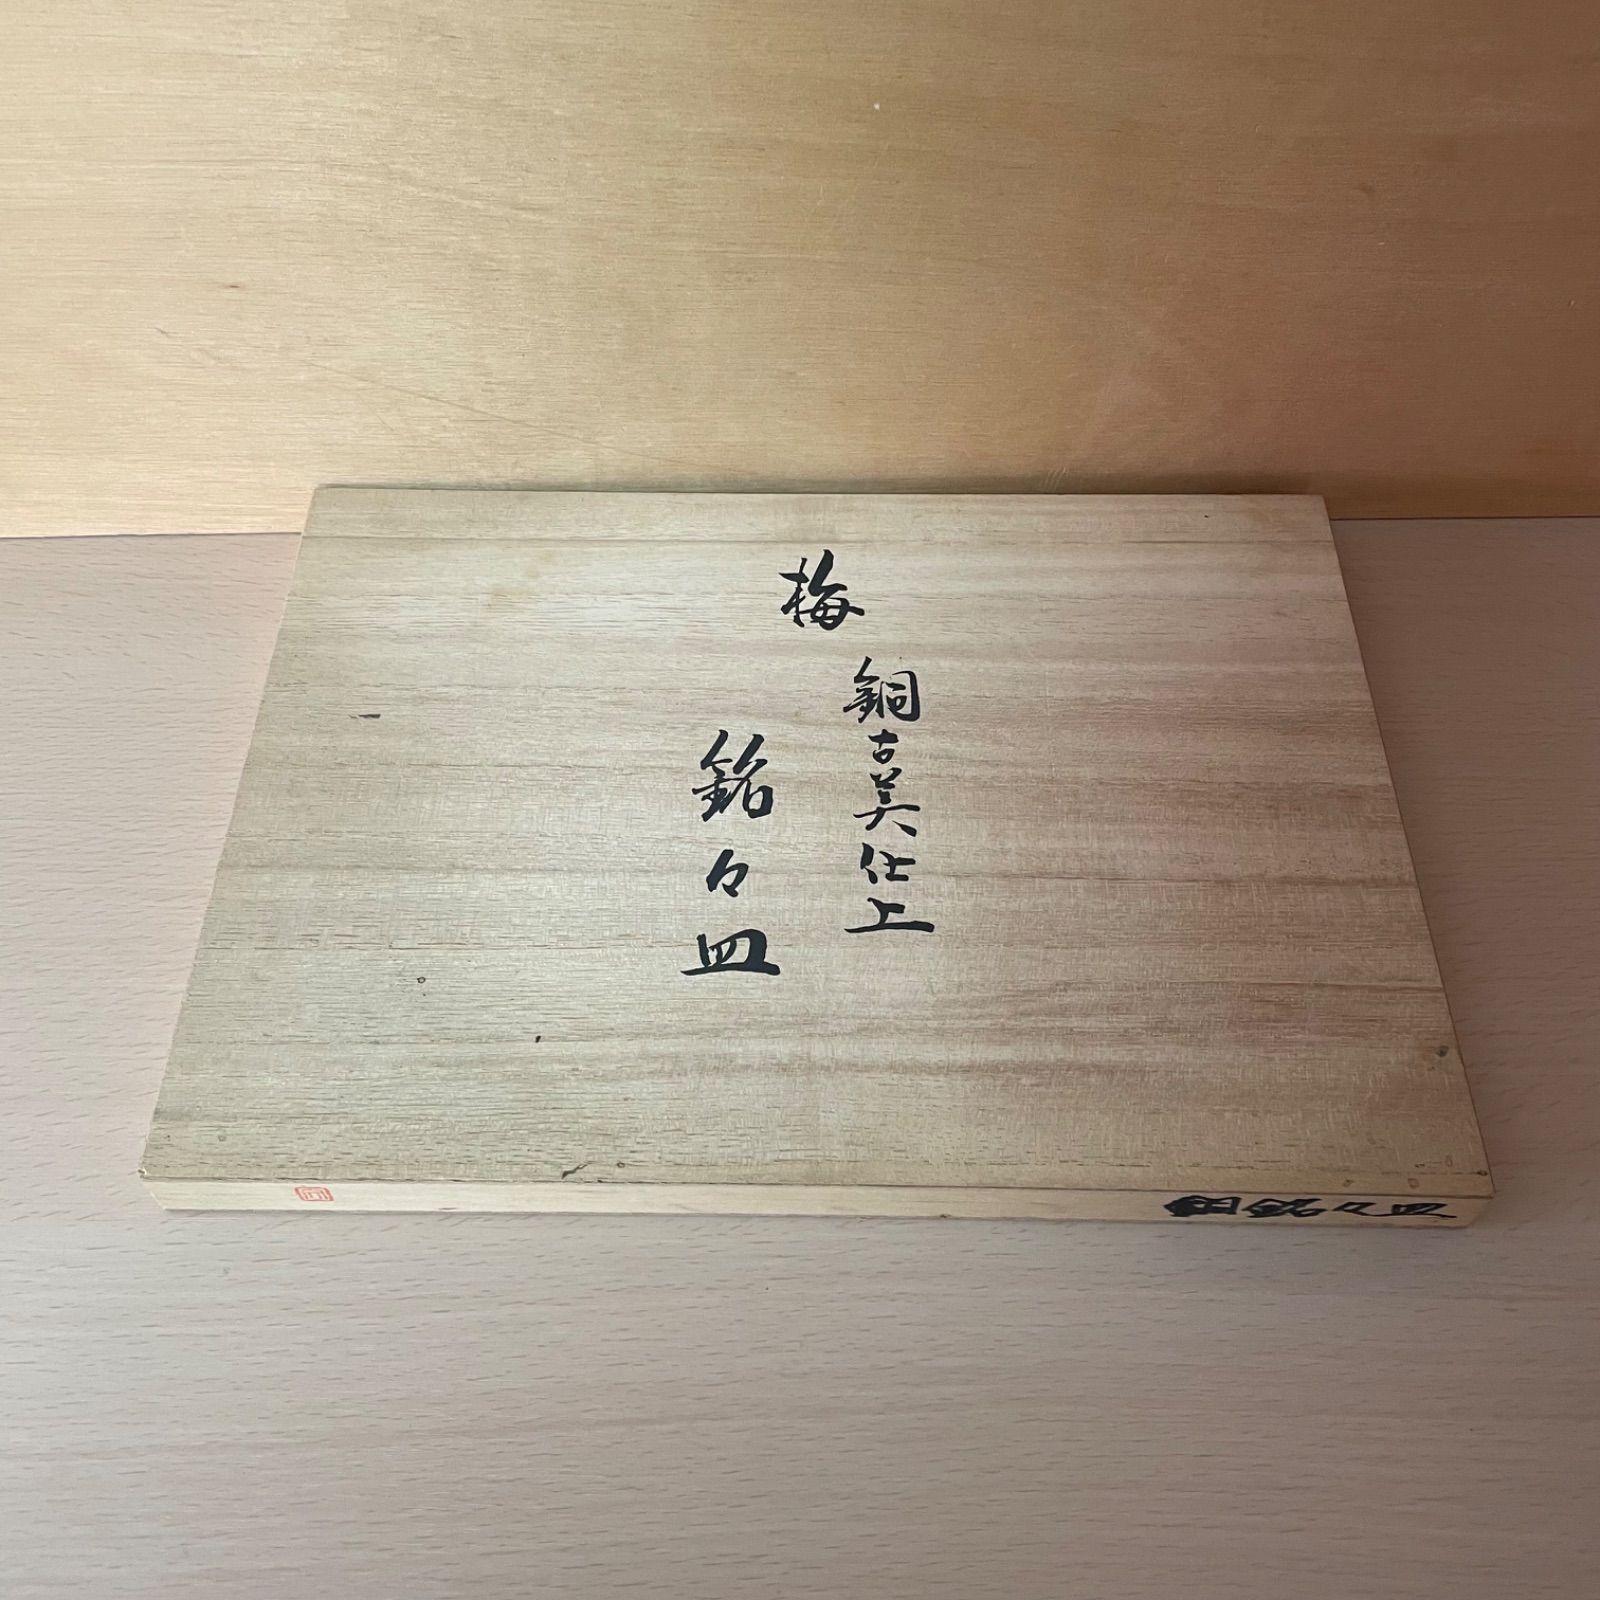 梅
銅古美仕上
銘々皿
銘々皿